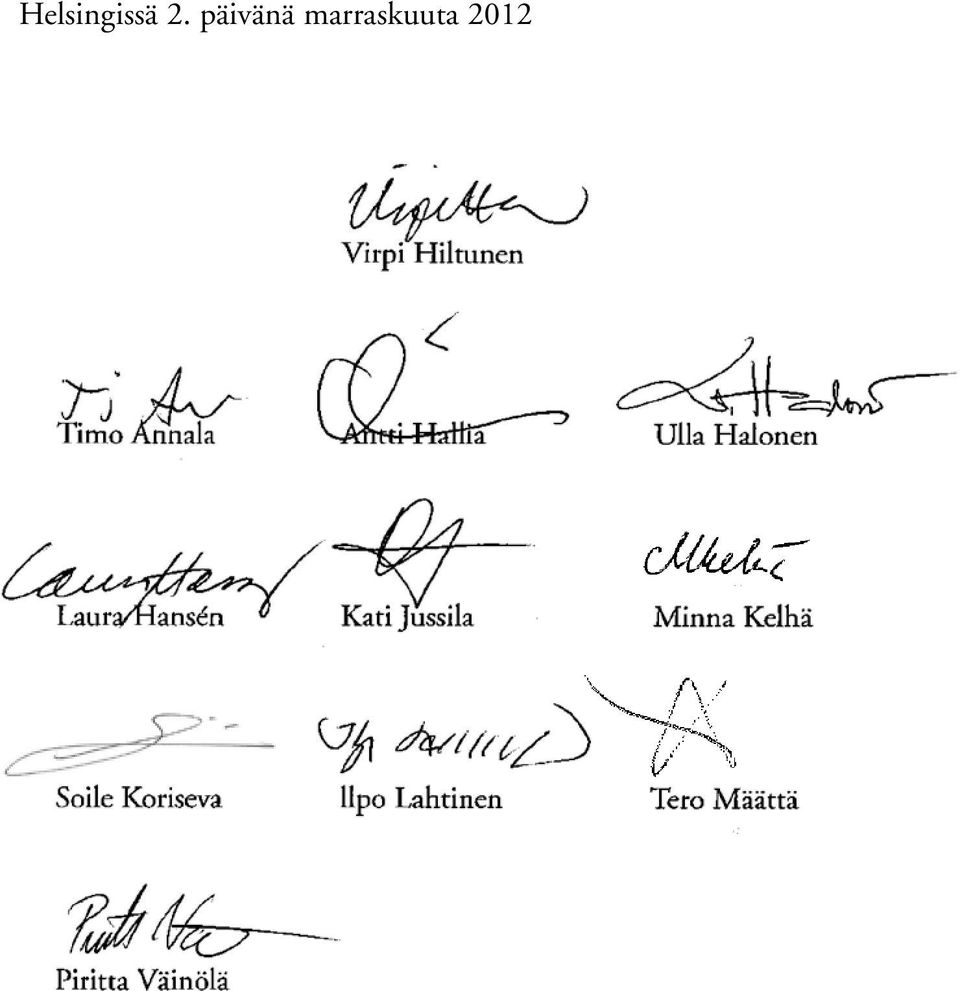 Helsingissä 2. päivänä marraskuuta 2012
Virpi Hiltunen
Timo Annala Antti Hallia Ulla Halonen
Laura Hansén Kati Jussila Minna Kelhä
Soile Koriseva Ilpo Lahtinen Tero Määttä
Piritta Väinölä